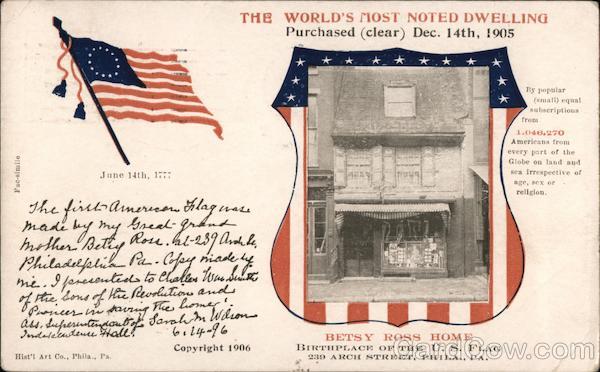 THE WORLD'S MOST NOTED DWELLING
Purchased (clear) Dec. 14th, 1905
By popular
(small) equal
subscriptions
from
1,046,270
Americans from
every part of the
Globe on land and
sea irrespective of
age, sex or
religion.
Fac-simile
June 14th, 1777
The first American Flag was
made by my Great-Grand
Mother Betsy Ross. at-239 Arch St.
Philadelphia Pa. Copy made by
me. I presented to Charles
of the Sons of the Revolution and
Pioneer in saving the home
Ass. Superintendent of Sarah M Wilson
Independence Hall. 6-14-96
Copyright 1906
Hist'l Art Co., Phila., Pa.
BETSY ROSS HOME
BIRTHPLACE OF THE U. S. FLAG
239 ARCH STREET, PHILA., PA.
CardCow.com